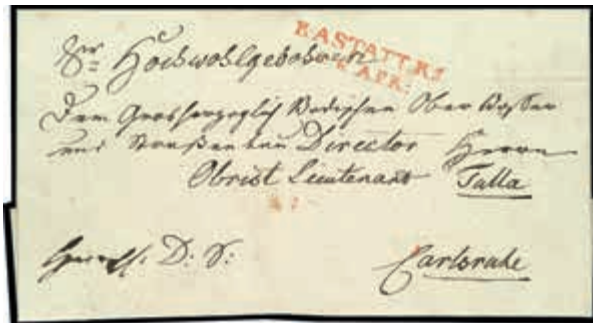 RASTATT R.1
APR:
Sr Hochwohlgebohren
Dem Grosherzoglich Badischen Ober Wasser
und Straßenbau Director Herrn
Obrist Lieutenant Tulla
D: S:
Carlsruhe